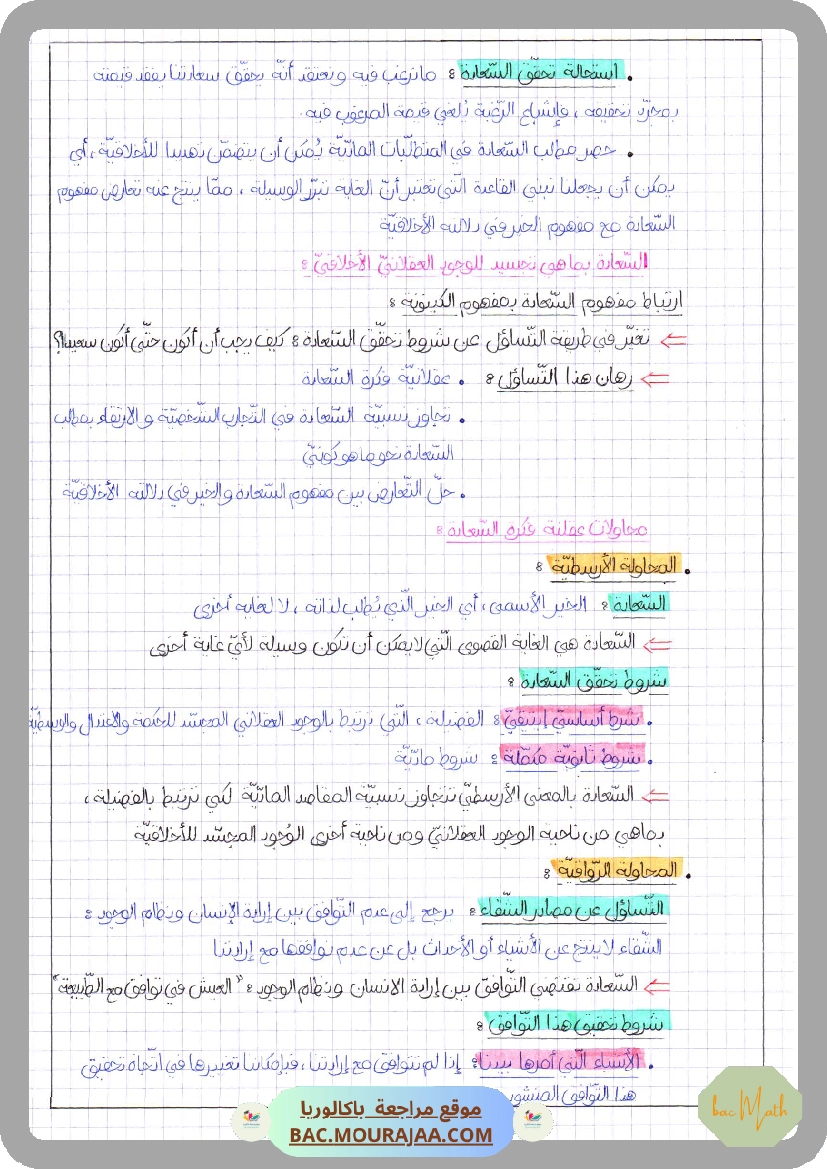 . استحالة تحقّق السّعادة : ما نرغب فيه و نعتقد أنّه يحقّق سعادتنا يفقد قيمته
بمجرّد تحقيقه ، فإشباع الرّغبة يُلغي قيمة المرغوب فيه .
. حصر مطالب السّعادة في المتطلّبات الماديّة يُمكن أن يتضمّن تهديدا للأخلاقيّة ، أي
يمكن أن يجعلنا نتبنى القاعدة الّتي تعتبر أنّ الغاية تبرّر الوسيلة ، ممّا ينتج عنه تعارض مفهوم
السّعادة مع مفهوم الخير في دلالته الأخلاقيّة
السّعادة بما هي تجسيد للوجود العقلانيّ الأخلاقيّ :
ارتباط مفهوم السّعادة بمفهوم الكينونة :
⇐ تغيّر في طريقة التّساؤل عن شروط تحقّق السّعادة : كيف يجب أن أكون حتّى أكون سعيدا؟
⇐ رهان هذا التّساؤل : . عقلانيّة فكرة السّعادة
. تجاوز نسبيّة السّعادة في التّجارب الشّخصيّة و الارتقاء بمطلب
السّعادة نحو ما هو كونيّ
. حلّ التّعارض بين مفهوم السّعادة و الخير في دلالته الأخلاقيّة
محاولات عقلنة فكرة السّعادة :
. المحاولة الأرسطيّة :
السّعادة : الخير الأسمى ، أي الخير الّذي يُطلب لذاته ، لا لغاية أخرى
⇐ السّعادة هي الغاية القصوى الّتي لا يمكن أن تكون وسيلة لأيّ غاية أخرى
شروط تحقّق السّعادة :
. شرط أساسيّ إيتيقيّ : الفضيلة ، الّتي ترتبط بالوجود العقلاني المجسّد للحكمة والاعتدال والوسطيّة
. شروط ثانويّة مكمّلة : شروط ماديّة
⇐ السّعادة بالمعنى الأرسطيّ تتجاوز نسبيّة المقاصد الماديّة لكي ترتبط بالفضيلة ،
بما هي من ناحية الوجود العقلانيّ ومن ناحية أخرى الوُجود المجسّد للأخلاقيّة
. المحاولة الرّواقيّة :
التّساؤل عن مصادر الشّقاء : يرجع إلى عدم التّوافق بين إرادة الإنسان ونظام الوجود :
الشّقاء لا ينتج عن الأشياء أو الأحداث بل عن عدم توافقها مع إرادتنا
⇐ السّعادة تقتضي التّوافق بين إرادة الانسان ونظام الوجود : "العيش في توافق مع الطّبيعة"
شروط تحقيق هذا التّوافق :
. الأشياء الّتي أمرها بيدنا : إذا لم تتوافق مع إرادتنا ، فبإمكاننا تغييرها في اتّجاه تحقيق
هذا التّوافق المنشود
موقع مراجعة باكالوريا
BAC.MOURAJAA.COM
bac Math